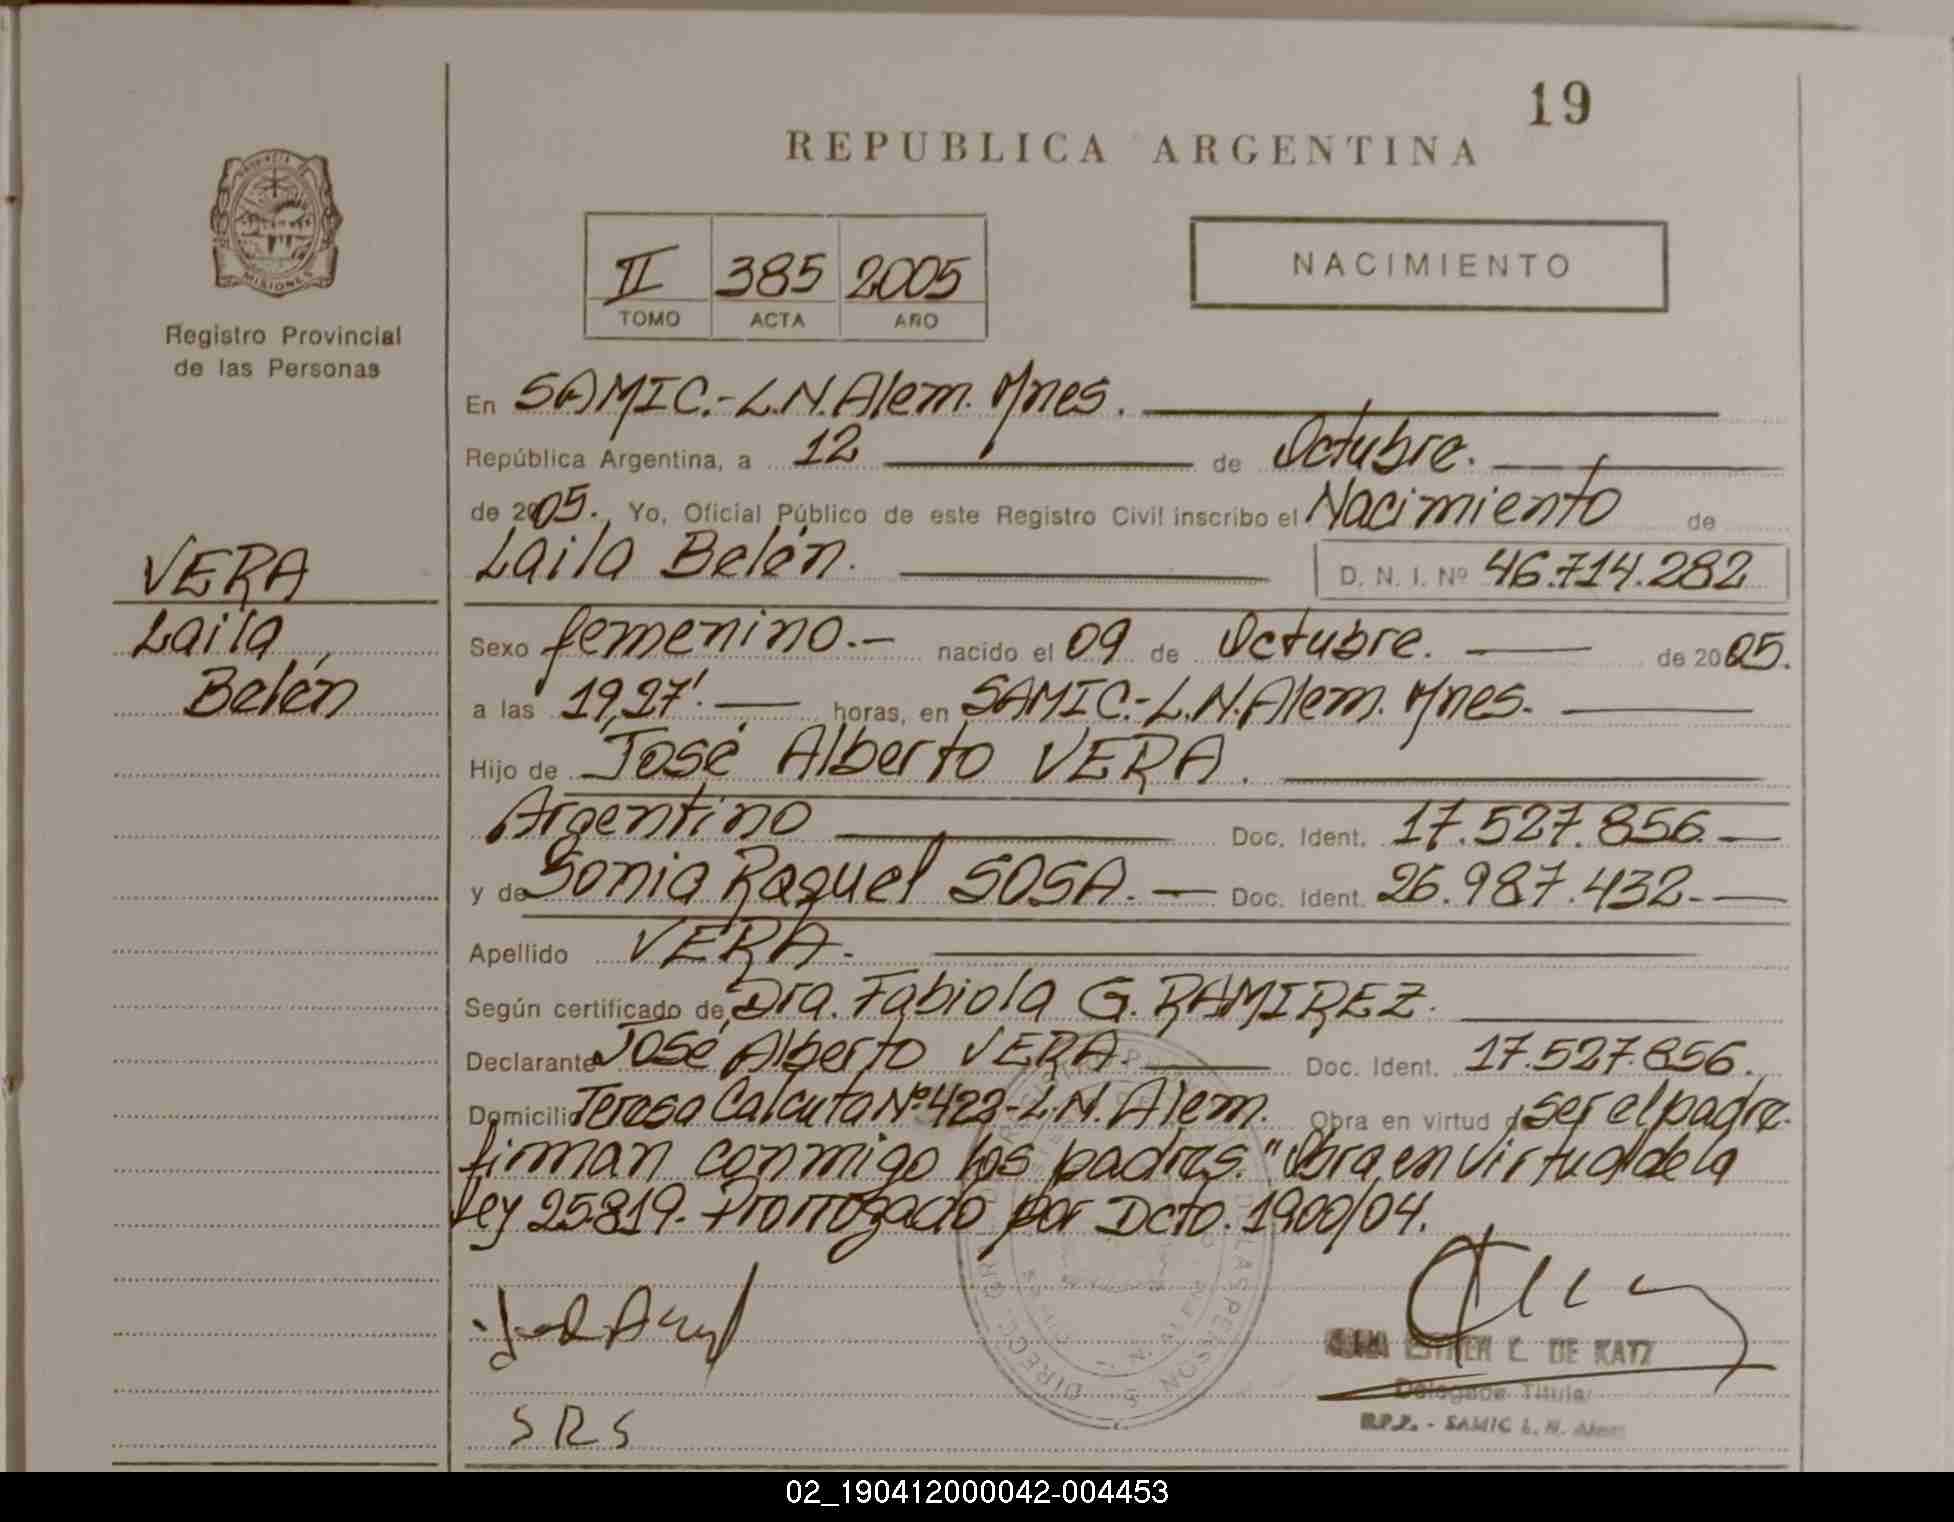 19
REPUBLICA ARGENTINA
PROVINCIA DE
MISIONES
Registro Provincial
de las Personas
II 385 2005
TOMO ACTA AÑO
NACIMIENTO
En SAMIC.-L.N.Alem. Mnes.
República Argentina, a 12 de Octubre.
de 2005. Yo, Oficial Público de este Registro Civil inscribo el Nacimiento de
Laila Belén. D. N. I. Nº 46.714.282
VERA
Laila
Belén
Sexo femenino.- nacido el 09 de Octubre. de 2005.
a las 19,27'. horas, en SAMIC.-L.N.Alem. Mnes.
Hijo de José Alberto VERA.
Argentino Doc. Ident. 17.527.856.
y de Sonia Raquel SOSA. Doc. Ident. 26.987.432.
Apellido VERA.
Según certificado de Dra. Fabiola G. RAMIREZ.
Declarante José Alberto VERA. Doc. Ident. 17.527.856.
Domicilio Teresa Calcuta Nº 422-L.N. Alem. Obra en virtud de ser el padre.
firman conmigo los padres. "Obra en virtud de la
Ley 25819. Prorrogado por Dcto. 1900/04.
ESTHER L. DE KATZ
Delegada Titular
R.P.P. - SAMIC L. N. Alem
SRS
02_190412000042-004453